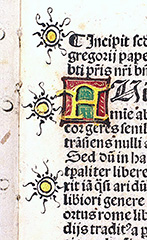 ¶ Incipit sc
gregorij pape
bti pris nri bn
A
mic ab
cor geres senil
trãsiens nulli a
Sed dũ in ha
tpaliter libere
rit iã qsi ari dũ
libiori genere
ortus rome lib
dijs tradit⁹ a p